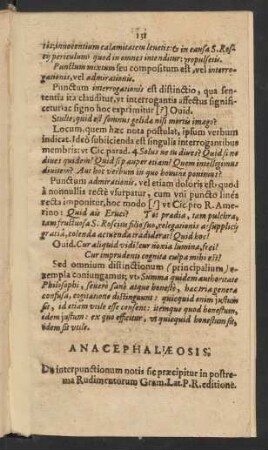 151
tis, innocentium calamitatem leuetis: & in causa S. Rosci
ij periculum, quod in omnes intenditur, propulsetis.
Punctum mixtum seu compositum est, vel interro-
gationis, vel admirationis.
Punctum interrogationis est distinctio, qua sen-
tentia ita clauditur, vt interrogantis affectus signifi-
cetur: ac signo hoc exprimitur [?] Ouid.
Stulte, quid est somnus, gelida nisi mortis imago?
Locum, quem hæc nota postulat, ipsum verbum
indicat. Ideò subiicienda est singulis interrogantibus
membris: vt Cic. parad. 4. Solus ne tu diues? Quid si ne
diues quidem? Quid si pauper etiam? Quem intelligimus
diuitem? Aut hoc verbum in quo homine ponimus?
Punctum admirationis, vel etiam doloris est: quod
à nonnullis rectè vsurpatur, cum vni puncto lineæ
recta imponitur, hoc modo [!] vt Cic. pro R. Ame-
rino: Quid ais Eruci? Tot prædia, tam pulchra,
tam fructuosa S. Roscius filio suo, relegationis ac supplicij
gratiâ, colenda ac tuenda tradiderat! Quid hoc!
Ouid. Cur aliquid vidi! cur noxia lumina, feci!
Cur imprudenti cognita culpa mihi est!
Sed omnium distinctionum (principalium) e-
xempla coniungamus, vt: Summa quidem authoritate
Philosophi, seuerè sanè atque honestè, hæc tria genera
confusa, cogitatione distinguunt: quicquid enim justum
sit, id etiam vtile esse censent: itemque quod honestum,
idem justum: ex quo efficitur, vt quicquid honestum sit,
idem sit vtile.
ANACEPHALÆOSIS.
De interpunctionum notis sic præcipitur in postre-
ma Rudimentorum Gram. Lat. P. R. editione.